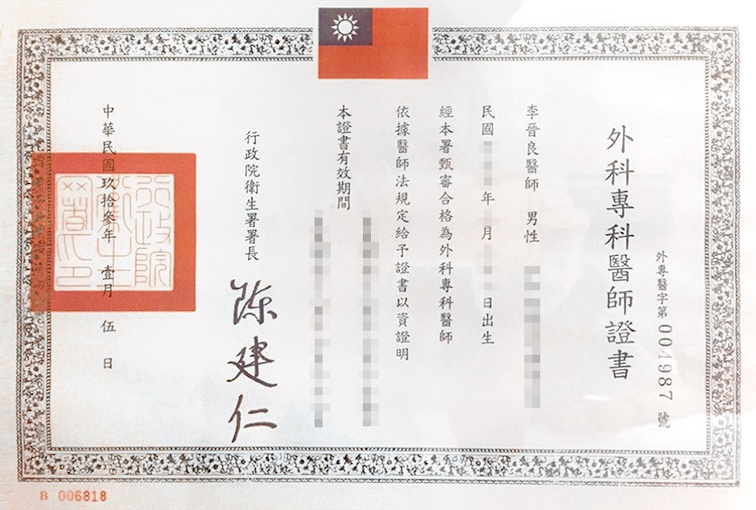 外科專科醫師證書
外專醫字第004987號
李晉良醫師 男性
民國 年 月 日出生
經本署甄審合格為外科專科醫師
依據醫師法規定給予證書以資證明
本證書有效期間
行政院衛生署署長
陳建仁
中華民國玖拾參年 壹月 伍 日
行政院衛生署印
B 006818